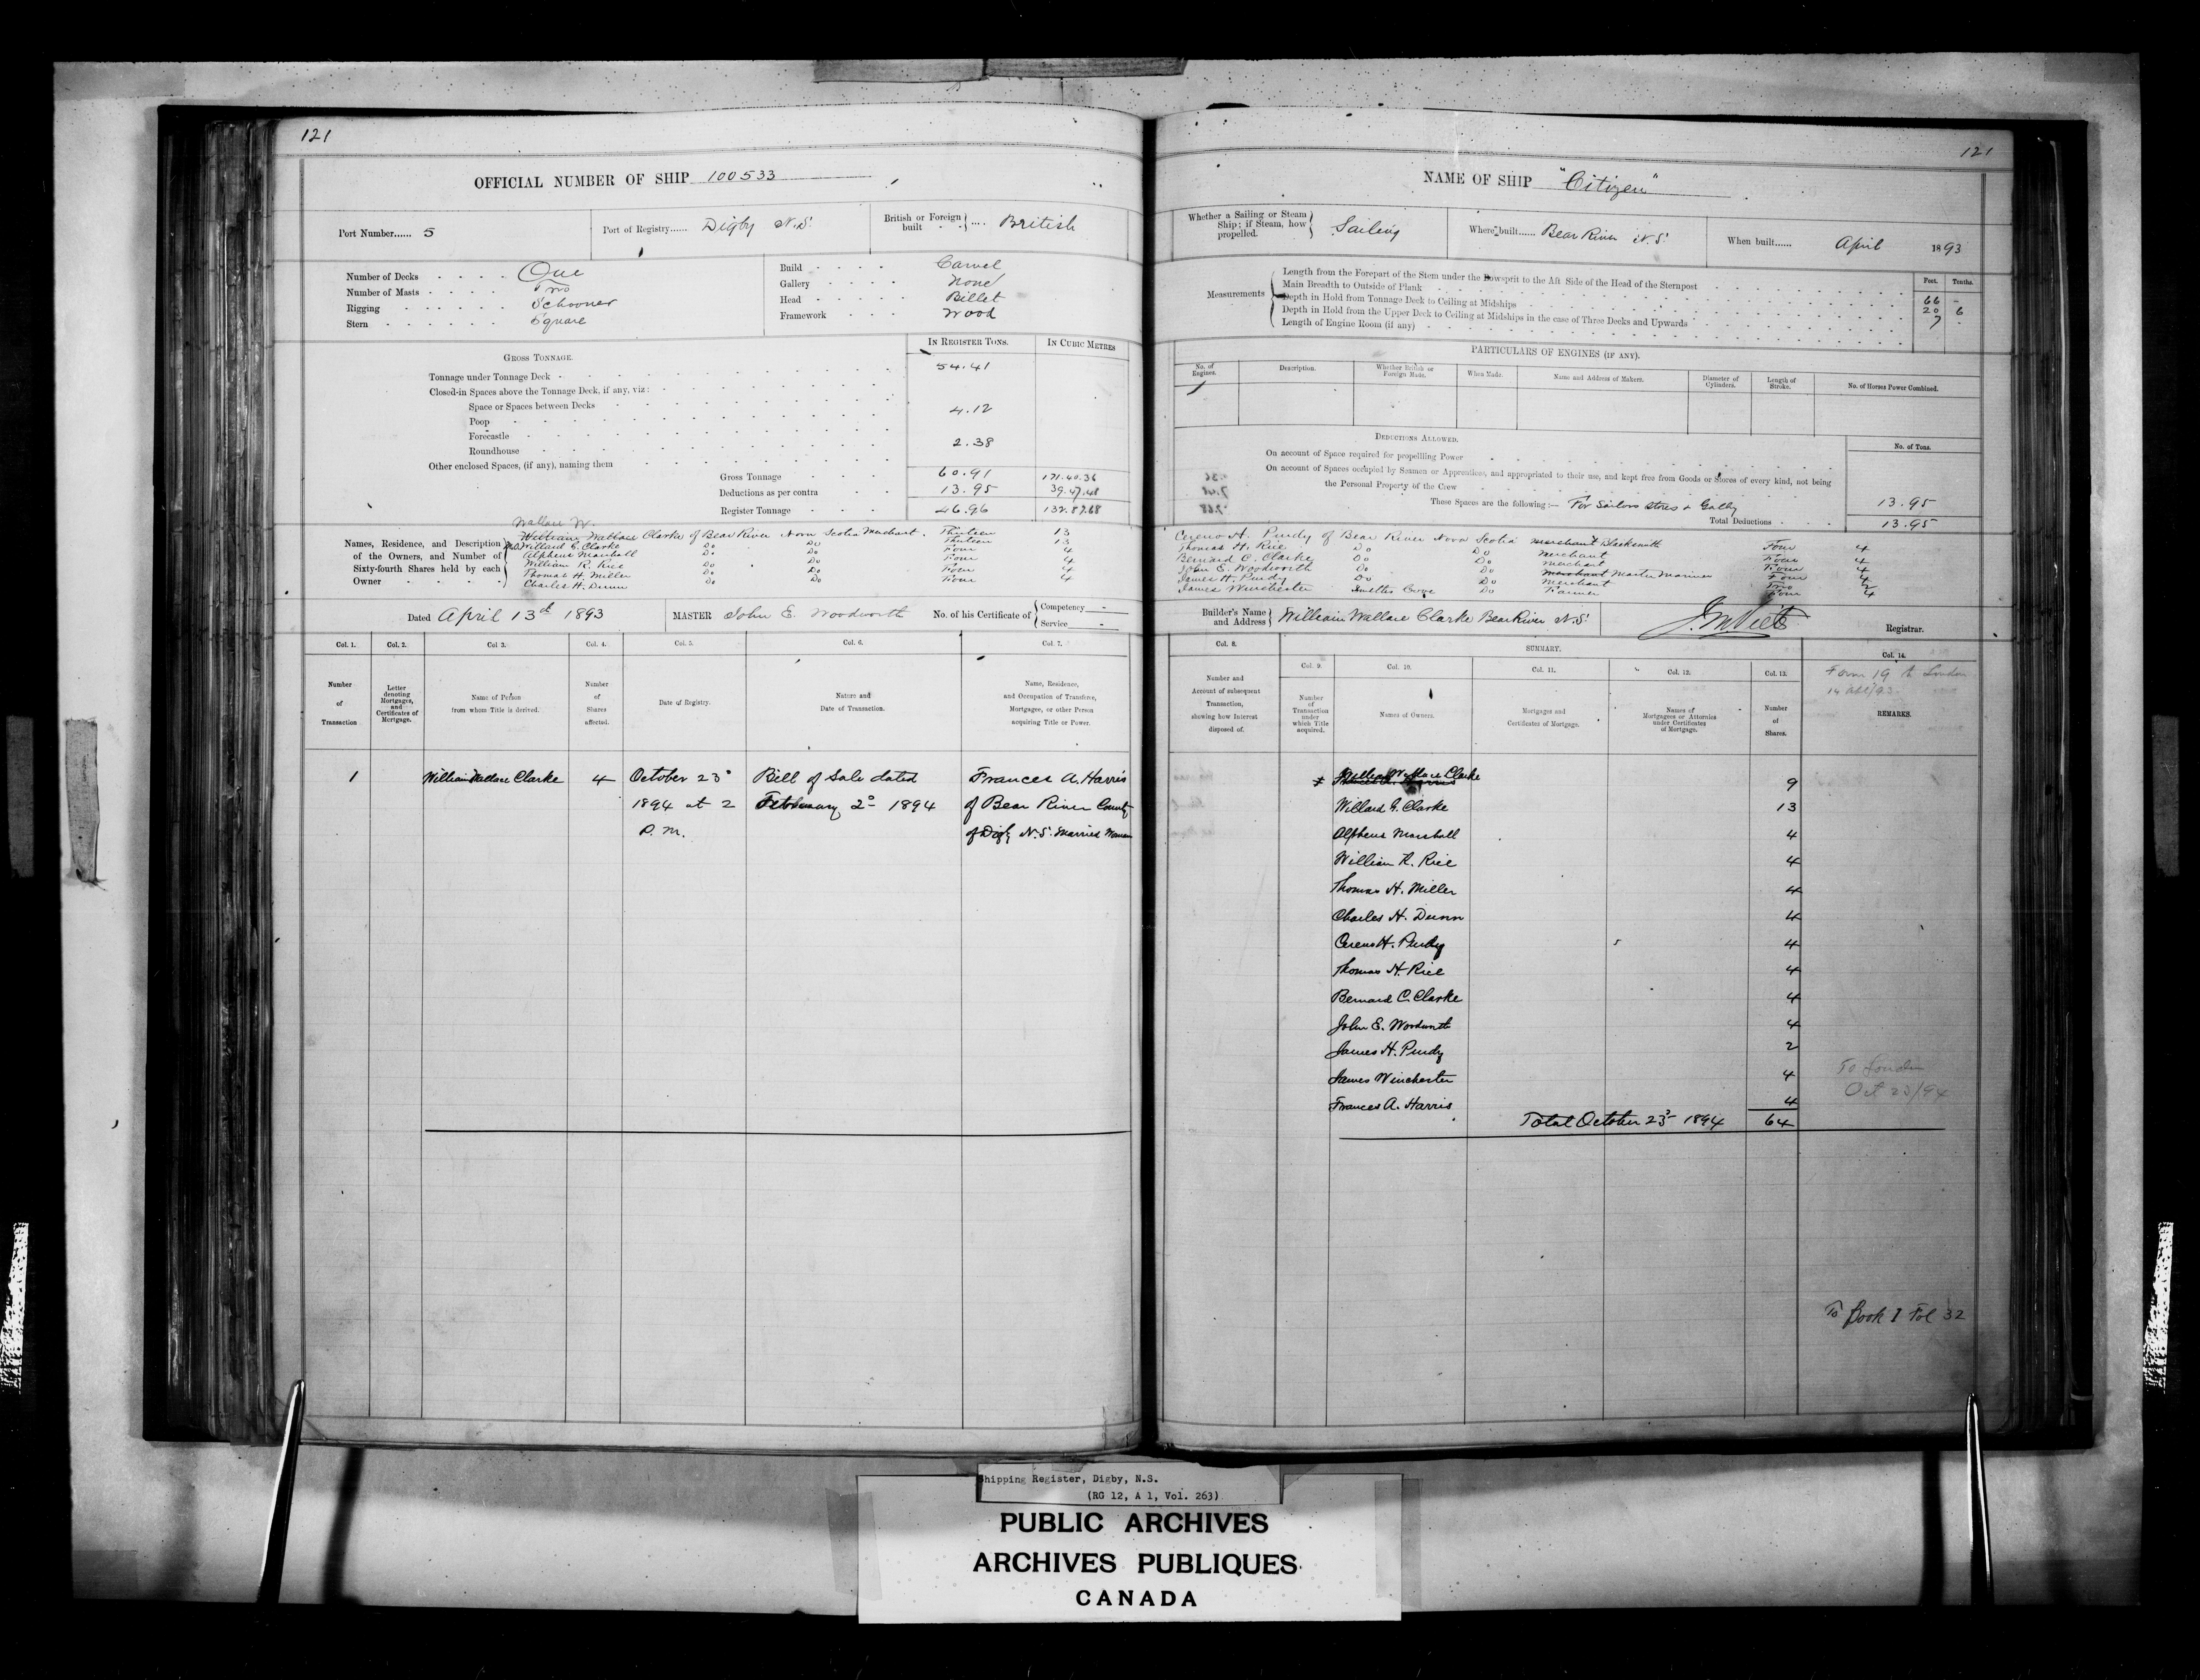 121
OFFICIAL NUMBER OF SHIP 100533
Port Number...... 5
Port of Registry...... Digby N.S.
British or Foreign built .... British
Number of Decks One
Number of Masts Two
Rigging Schooner
Stern Square
Build Carvel
Gallery None
Head Billet
Framework Wood
GROSS TONNAGE.
IN REGISTER TONS.
IN CUBIC METRES
Tonnage under Tonnage Deck 54.41
Closed-in Spaces above the Tonnage Deck, if any, viz:
Space or Spaces between Decks
Poop 4.12
Forecastle
Roundhouse 2.38
Other enclosed Spaces, (if any), naming them
Gross Tonnage 60.91 171.40.36
Deductions as per contra 13.95 39.47.48
Register Tonnage 46.96 132.87.68
Names, Residence, and Description of the Owners, and Number of Sixty-fourth Shares held by each Owner
Wallace W.
William Wallace Clarke of Bear River Nova Scotia Merchant. Thirteen 13
Willard G. Clarke Do Do Thirteen 13
Alpheus Marshall Do Do Four 4
William R. Rice Do Do Four 4
Thomas H. Miller Do Do Four 4
Charles H. Dunn Do Do Four 4
Dated April 13th 1893
MASTER John E. Woodworth
No. of his Certificate of Competency -
Service -
Col. 1. Col. 2. Col 3. Col. 4. Col. 5. Col. 6. Col. 7.
Number of Transaction
Letter denoting Mortgages, and Certificates of Mortgage.
Name of Person from whom Title is derived.
Number of Shares affected.
Date of Registry.
Nature and Date of Transaction.
Name, Residence, and Occupation of Transferee, Mortgagee, or other Person acquiring Title or Power.
1 William Wallace Clarke 4 October 23d Bill of Sale dated Frances A. Harris
1894 at 2 February 2d 1894 of Bear River County
P.M. of Digby N.S. Married Woman
121
NAME OF SHIP "Citizen"
Whether a Sailing or Steam Ship; if Steam, how propelled. Sailing
Where built...... Bear River N.S.
When built...... April 1893
Measurements
Feet. Tenths.
Length from the Forepart of the Stem under the Bowsprit to the Aft Side of the Head of the Sternpost 66 -
Main Breadth to Outside of Plank 20 6
Depth in Hold from Tonnage Deck to Ceiling at Midships 7 -
Depth in Hold from the Upper Deck to Ceiling at Midships in the case of Three Decks and Upwards
Length of Engine Room (if any)
PARTICULARS OF ENGINES (IF ANY).
No. of Engines.
Description.
Whether British or Foreign Made.
When Made.
Name and Address of Makers.
Diameter of Cylinders.
Length of Stroke.
No. of Horses Power Combined.
DEDUCTIONS ALLOWED.
No. of Tons.
On account of Space required for propelling Power
On account of Spaces occupied by Seamen or Apprentices, and appropriated to their use, and kept free from Goods or Stores of every kind, not being the Personal Property of the Crew
These Spaces are the following:— For Sailors Stores & Gally 13.95
Total Deductions 13.95
Cereno H. Purdy of Bear River Nova Scotia Merchant Blacksmith Four 4
Thomas H. Rice Do Do Merchant Four 4
Bernard C. Clarke Do Do Merchant Four 4
John E. Woodworth Do Do Merchant Master Mariner Four 4
James H. Purdy Do Do Merchant Two 2
James Winchester Smiths Cove Do Farmer Four 4
Builder's Name and Address William Wallace Clarke Bear River N.S.
J. M. Viets
Registrar.
Col. 8. SUMMARY. Col. 14.
Col. 9. Col. 10. Col. 11. Col. 12. Col. 13.
Number and Account of subsequent Transaction, showing how Interest disposed of.
Number of Transaction under which Title acquired.
Names of Owners.
Mortgages and Certificates of Mortgage.
Names of Mortgagees or Attornies under Certificates of Mortgage.
Number of Shares.
Form 19 to London
14 Apl/93
REMARKS.
William Wallace Clarke 9
Willard G. Clarke 13
Alpheus Marshall 4
William R. Rice 4
Thomas H. Miller 4
Charles H. Dunn 4
Cereno H. Purdy 4
Thomas H. Rice 4
Bernard C. Clarke 4
John E. Woodworth 4
James H. Purdy 2
James Winchester 4
Frances A. Harris 4
Total October 23d 1894 64
To London
Oct 23/94
To Book I Fol 32
Shipping Register, Digby, N.S.
(RG 12, A 1, Vol. 263)
PUBLIC ARCHIVES
ARCHIVES PUBLIQUES
CANADA